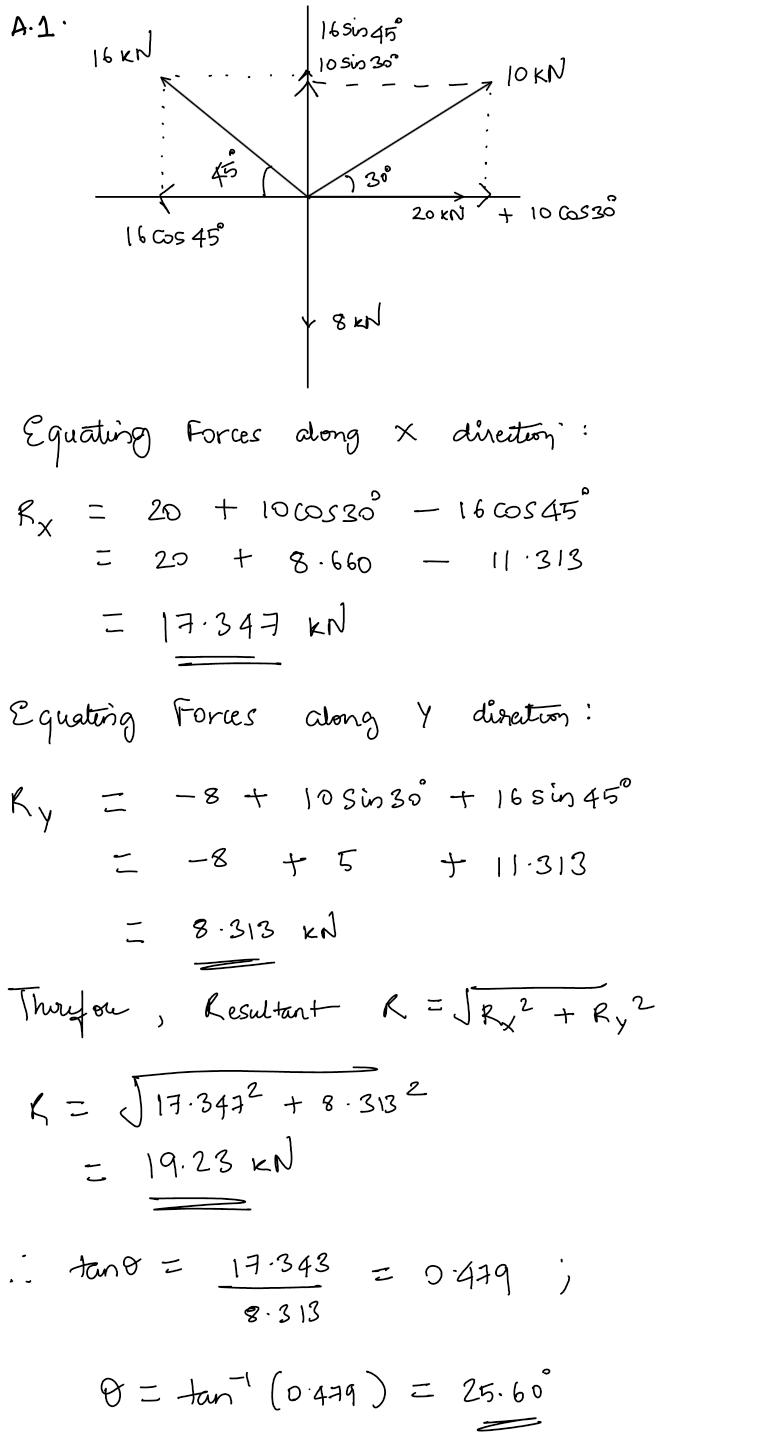 A.1.
16 sin 45°
16 kN
10 sin 30°
10 kN
45°
30°
20 kN + 10 cos 30°
16 cos 45°
8 kN
Equating Forces along x direction :
Rx = 20 + 10 cos 30° − 16 cos 45°
= 20 + 8.660 − 11.313
= 17.347 kN
Equating Forces along Y diration :
Ry = −8 + 10 Sin 30° + 16 sin 45°
= −8 + 5 + 11.313
= 8.313 kN
Therefore , Resultant R = √Rx² + Ry²
R = √17.347² + 8.313²
= 19.23 kN
∴ tanθ = 17.343 / 8.313 = 0.479 ;
θ = tan⁻¹ (0.479) = 25.60°